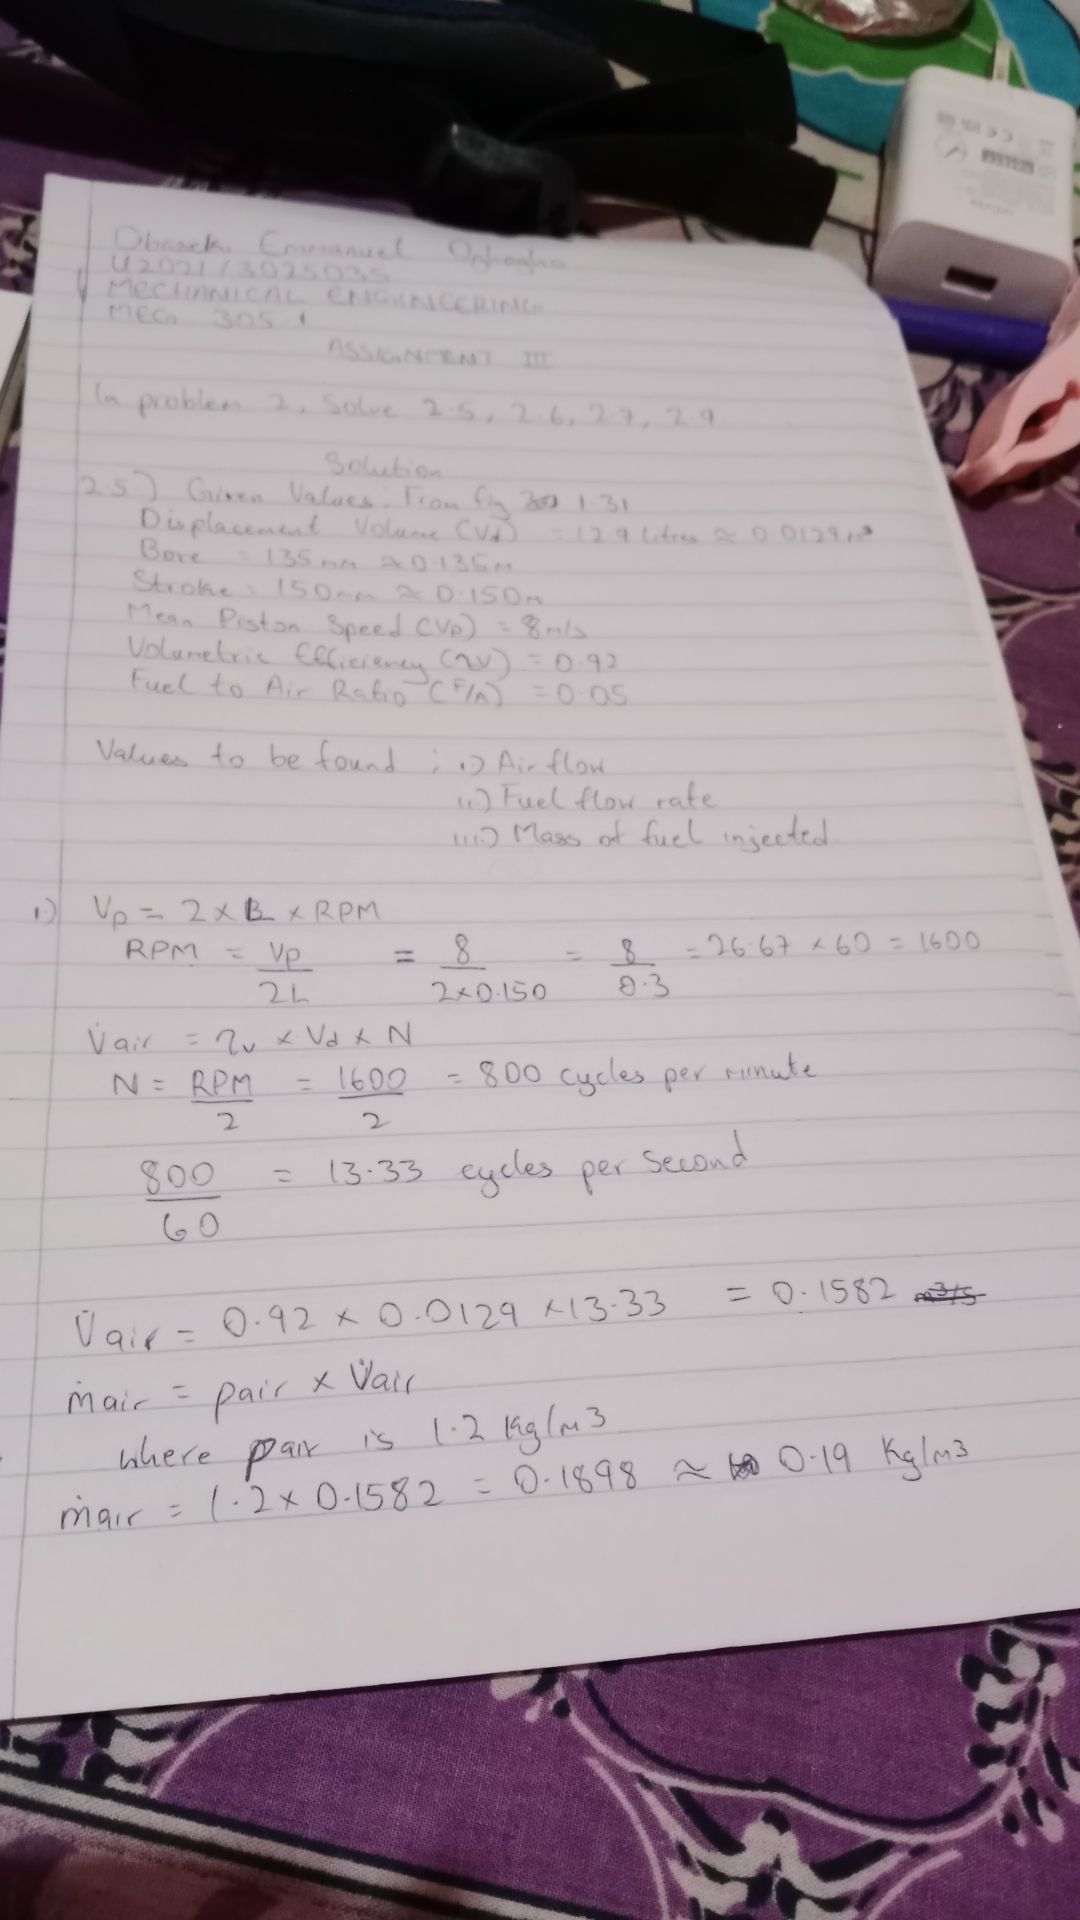 Emmanuel
U2021/3025035
MECHANICAL ENGINEERING
MEG 305.1
ASSIGNMENT III
In problem 2, Solve 2.5, 2.6, 2.7, 2.9
Solution
2.5) Given Values: From fig 1.31
Displacement Volume (Vd) = 12.9 litres ≈ 0.0129m³
Bore = 135mm ≈ 0.135m
Stroke = 150mm ≈ 0.150m
Mean Piston Speed (Vp) = 8m/s
Volumetric Efficiency (ηv) = 0.92
Fuel to Air Ratio (F/A) = 0.05
Values to be found ; i.) Air flow
ii.) Fuel flow rate
iii.) Mass of fuel injected.
i.) Vp = 2 × L × RPM
RPM = Vp/2L = 8/2×0.150 = 8/0.3 = 26.67 × 60 = 1600
V̇air = ηv × Vd × N
N = RPM/2 = 1600/2 = 800 cycles per minute
800/60 = 13.33 cycles per second
V̇air = 0.92 × 0.0129 × 13.33 = 0.1582 m3/s
ṁair = pair × V̇air
where pair is 1.2 Kg/m3
ṁair = 1.2 × 0.1582 = 0.1898 ≈ 0.19 Kg/m3